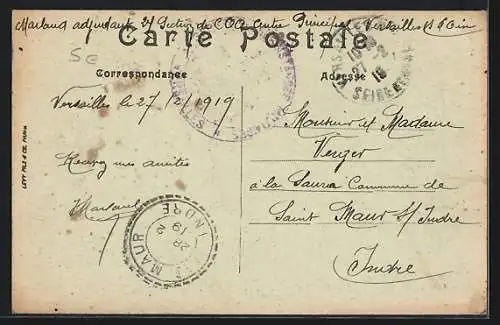 Marland adjudant 2e Section de COA Centre Principal Versailles S et Oise
Carte Postale
Correspondance
Adresse
Versailles le 27/2/1919
Recevez mes amitiés
Marland
Monsieur et Madame
Venzer
à la Commune de
Saint Maur s/ Indre
Indre
LEVY FILS & CIE PARIS
VERSAILLES
27 -2
19
SEINE ET OISE
ST MAUR
INDRE
28
2
19